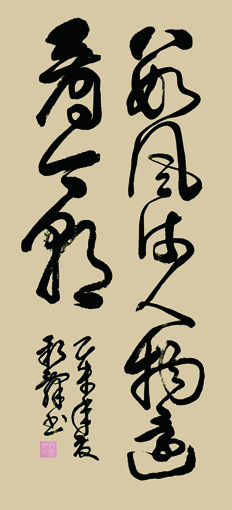 数风流人物还
看今朝
乙未年夏
书